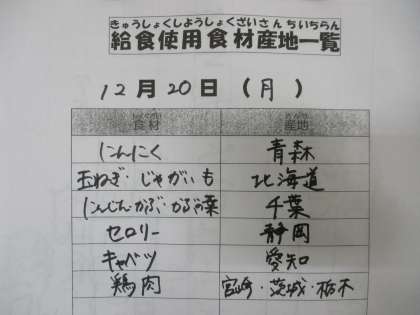 きゅうしょくしようしょくざいさんちいちらん
給食使用食材産地一覧
12月20日(月)
食材 産地
にんにく 青森
玉ねぎ・じゃがいも 北海道
にんじん・かぶ・かぶの葉 千葉
セロリー 静岡
キャベツ 愛知
鶏肉 宮崎・茨城・栃木